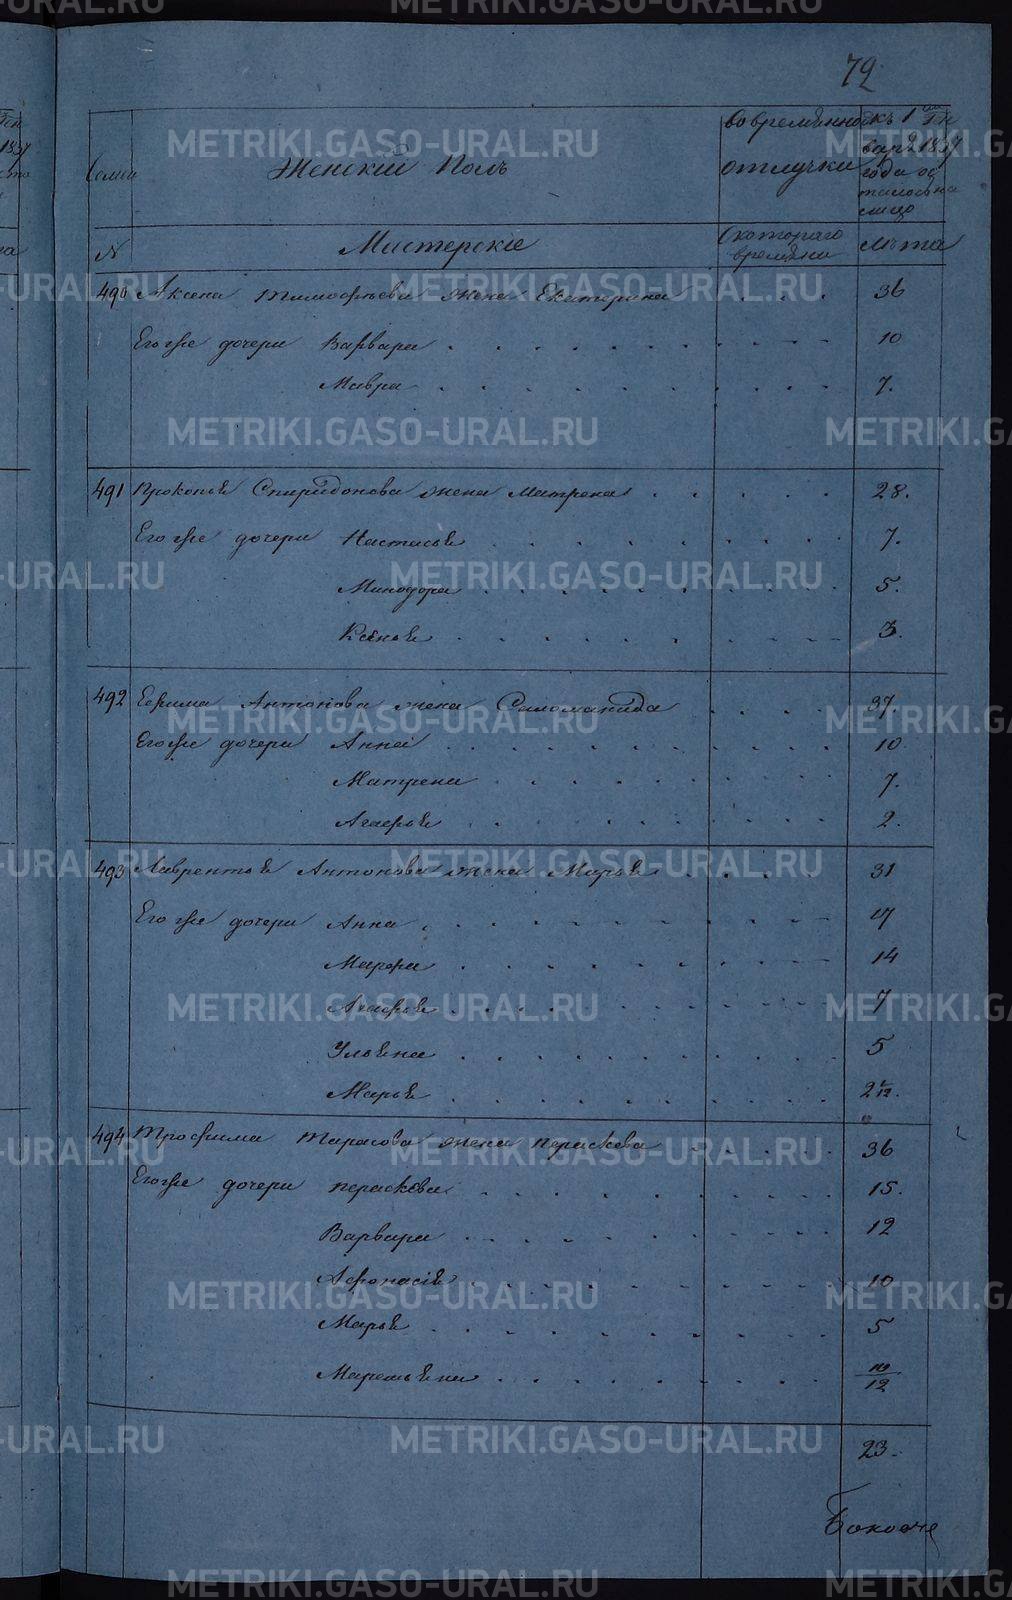 72
Семьи Женский Полъ во временной отлучки къ 1му Генваря 1837 года осталось на лицо
N Мастерские С котораго времени лета
490 Аксена Тимофеева жена Екатерина 36
Его же дочери Варвара 10
Мавра 7.
491 Прокопья Спиридонова жена Матрена 28.
Его же дочери Настасья 7.
Минодора 5.
Ксенья 3.
492 Ефима Антонова жена Саломанида 37.
Его же дочери Анна 10
Матрена 7.
Агафья 2.
493 Лаврентья Антонова жена Марья 31
Его же дочери Анна 17
Марфа 14
Агафья 7
Ульяна 5
Марья 2
494 Трофима Тарасова жена Парасковья 36
Его же дочери Параскова 15.
Варвара 12
Афонасия 10
Марья 5
Маремьяна 10/12
23.
METRIKI.GASO-URAL.RU